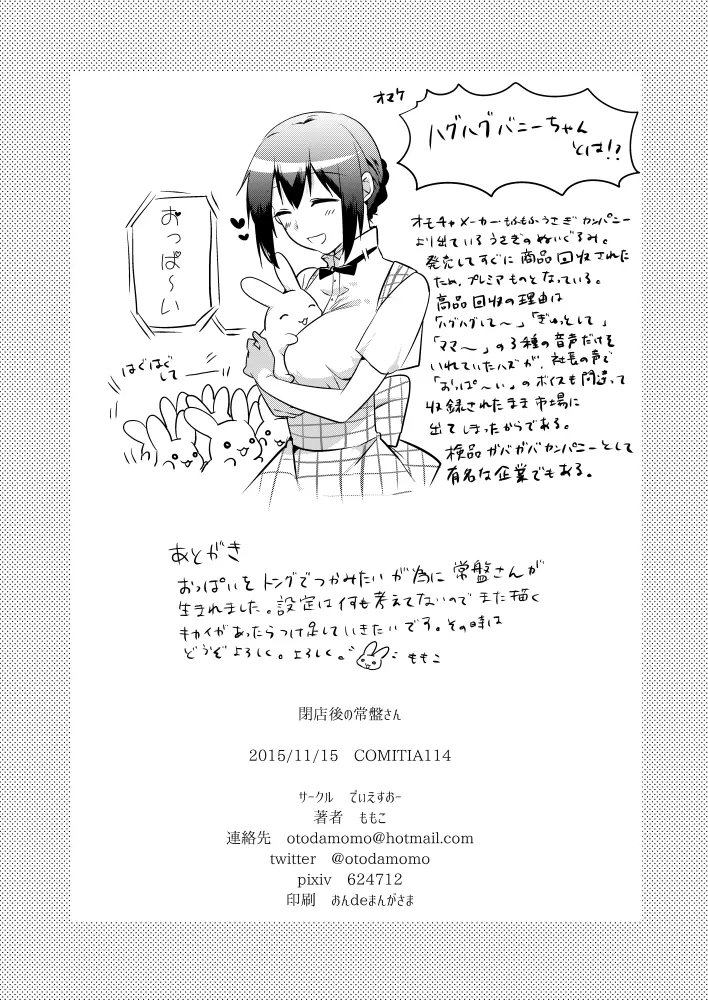 オマケ
ハグハグバニーちゃん
とは!?
オモチャメーカー・もふもふうさぎカンパニー
より出ているうさぎのぬいぐるみ。
発売してすぐに商品回収された
ため、プレミアものとなっている。
商品回収の理由は
「ハグハグして〜」「ぎゅっとして」
「ママ〜」の3種の音声だけを
いれていたハズが、社長の声で
「おっぱ〜い」のボイスも間違って
収録されたまま市場に
出てしまったからである。
検品ガバガバカンパニーとして
有名な企業でもある。
おっぱ〜い
はぐはぐ
して——
あとがき
おっぱいをトングでつかみたいが為に常盤さんが
生まれました。設定は何も考えてないのでまた描く
キカイがあったらつけ足していきたいです。その時は
どうぞよろしく。よろしく。
ももこ
閉店後の常盤さん
2015/11/15 COMITIA114
サークル でぃえすおー
著者 ももこ
連絡先 otodamomo@hotmail.com
twitter @otodamomo
pixiv 624712
印刷 おんdeまんがさま